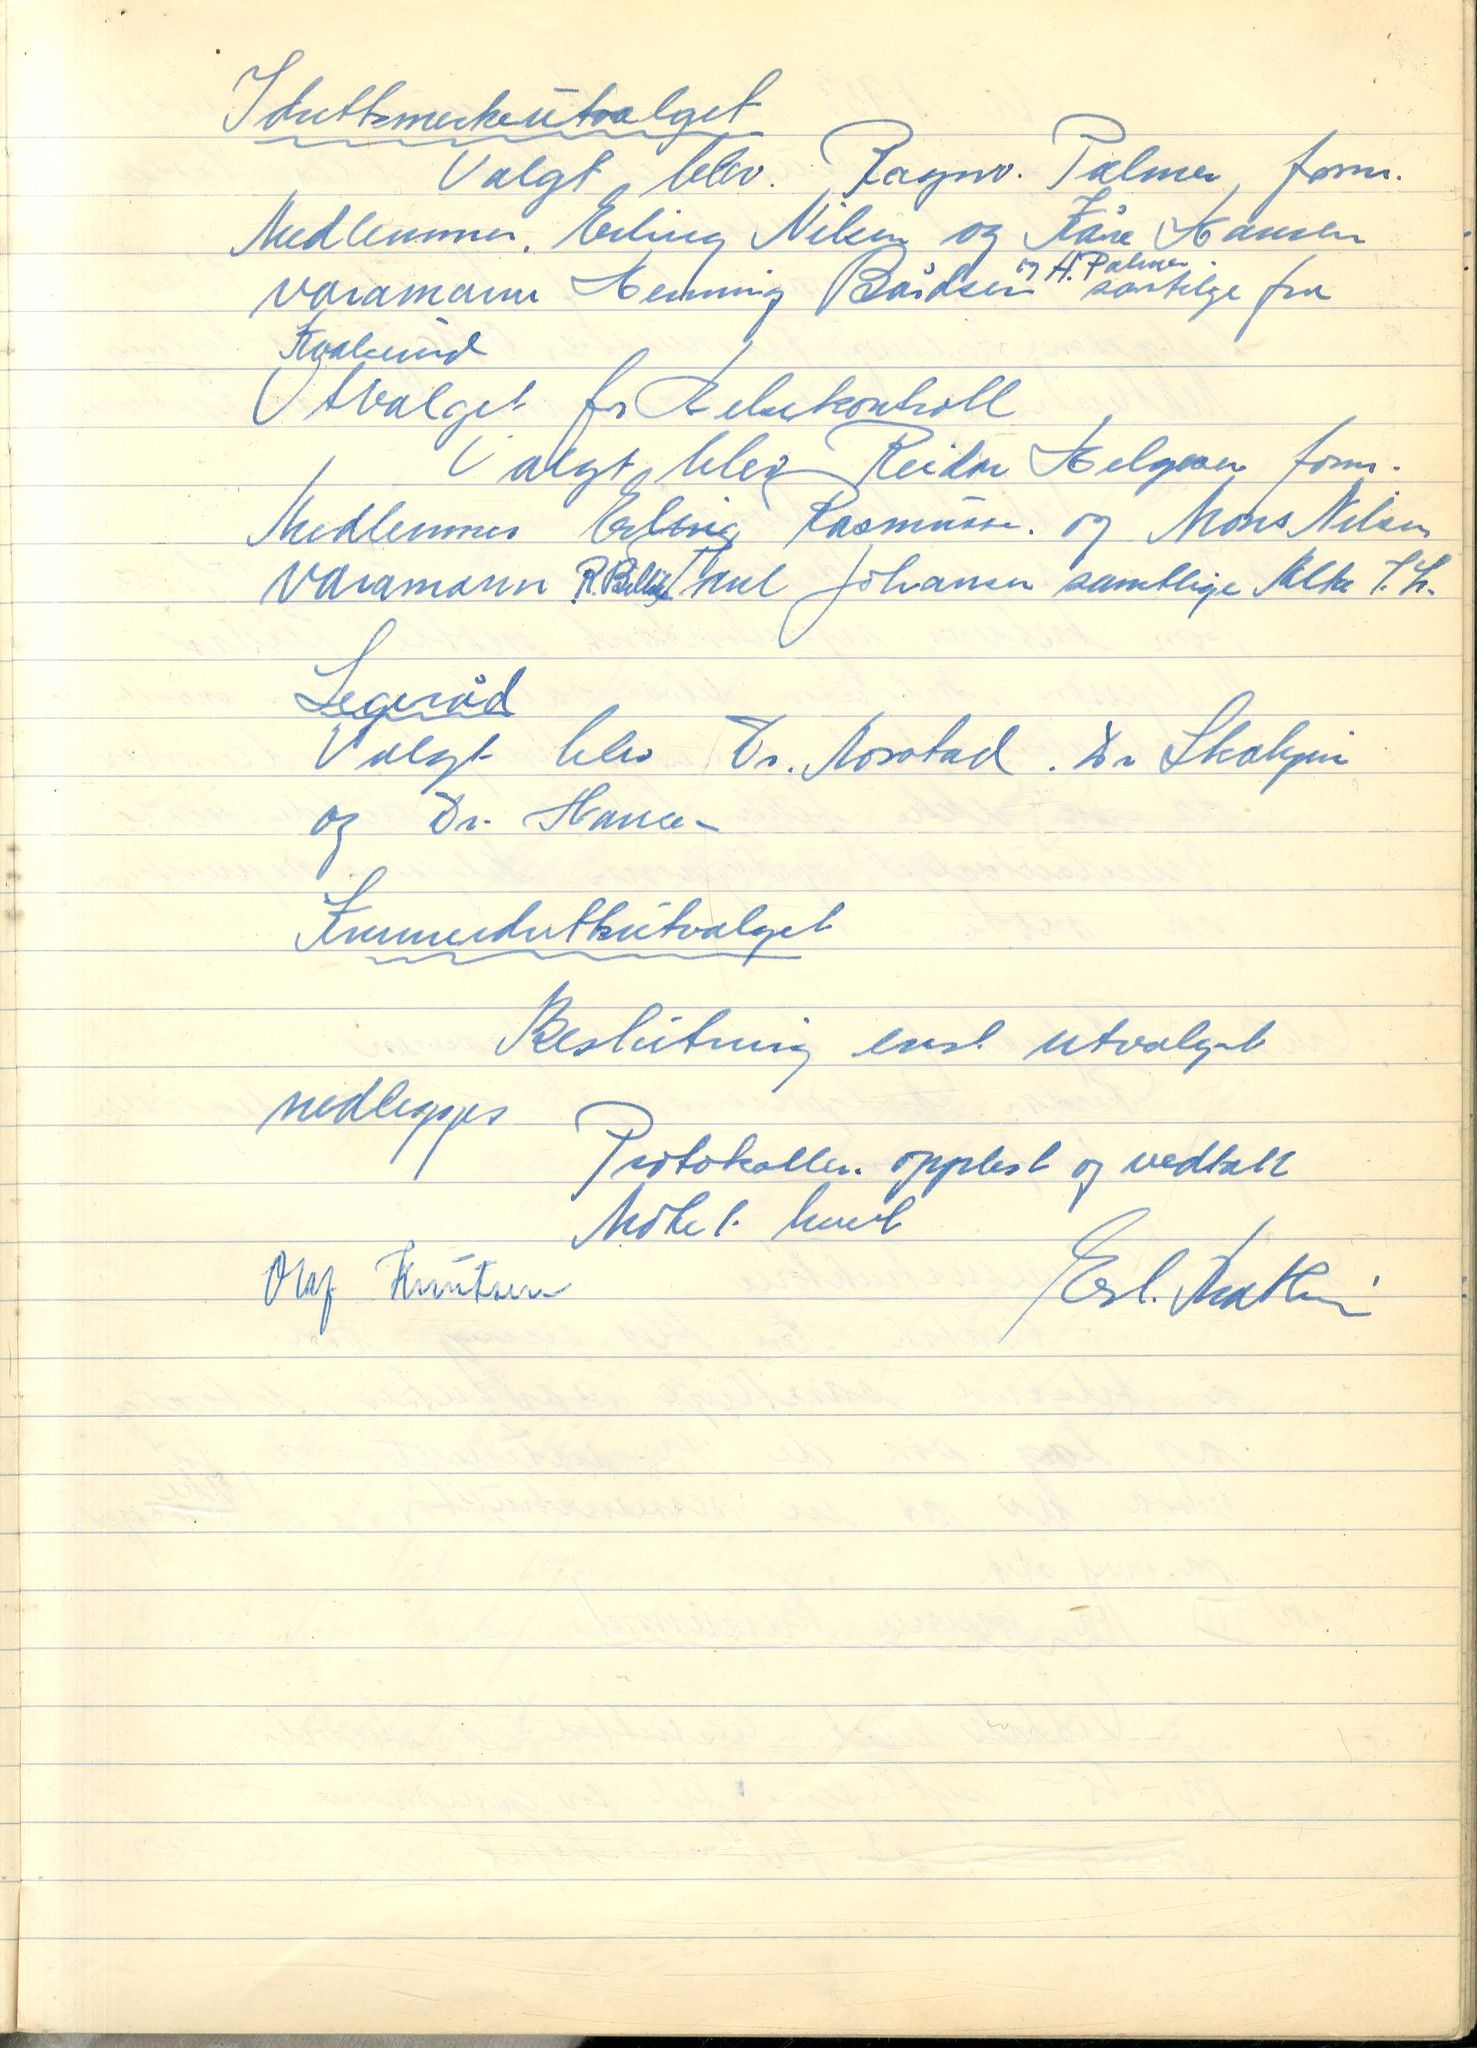 Idrettsmerkeutvalget
Valgt blev. Ragnv. Palmer, form.
Medlemmer. Erling Nilsen og Kåre Hansen
varamann Henning Bårdsen og H. Palmer. samtlige fra
Kvalsund
Utvalget for Helsekontroll
Valgt blev Reidar Helgesen form.
Medlemmer Erling Rasmussen. og Mons Nilsen
varamann R. Paul Johansen samtlige Alta I.L.
Legeråd
Valgt blev Dr. Dr
og Dr. Hansen
Kvinneidrettsutvalget
Beslutning enst. utvalget
nedlegges
Protokollen opplest og vedtatt
Møtet hevet
Olaf Knutsen Erl.